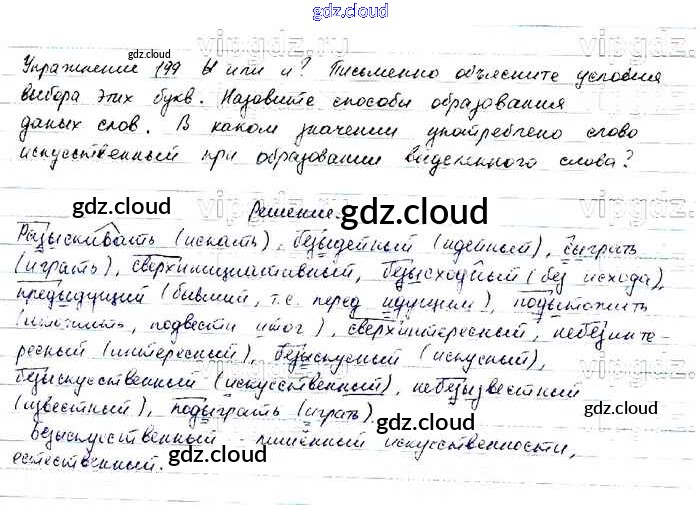 gdz.cloud
gdz.cloud
Упражнение 199 Ы или и? Письменно объясните условия
выбора этих букв. Назовите способы образования
даных слов. В каком значении употреблено слово
искусственный при образовании выделенного слова?
gdz.cloud Решение. gdz.cloud
Разыскивать (искать), безыдейный (идейный), сыграть
(играть), сверхинициативный, безысходный (без исхода),
предыдущий (бывший, т.е. перед идущим), подытожить
(итожить, подвести итог), сверхинтересный, небезинте-
ресный (интересный), безыскусный (искусный),
безыскусственный (искусственный), небезызвестный
(известный), подыграть (играть).
gdz.cloud
gdz.cloud
Безыскусственный - лишённый искусственности,
естественный.
gdz.cloud
gdz.cloud